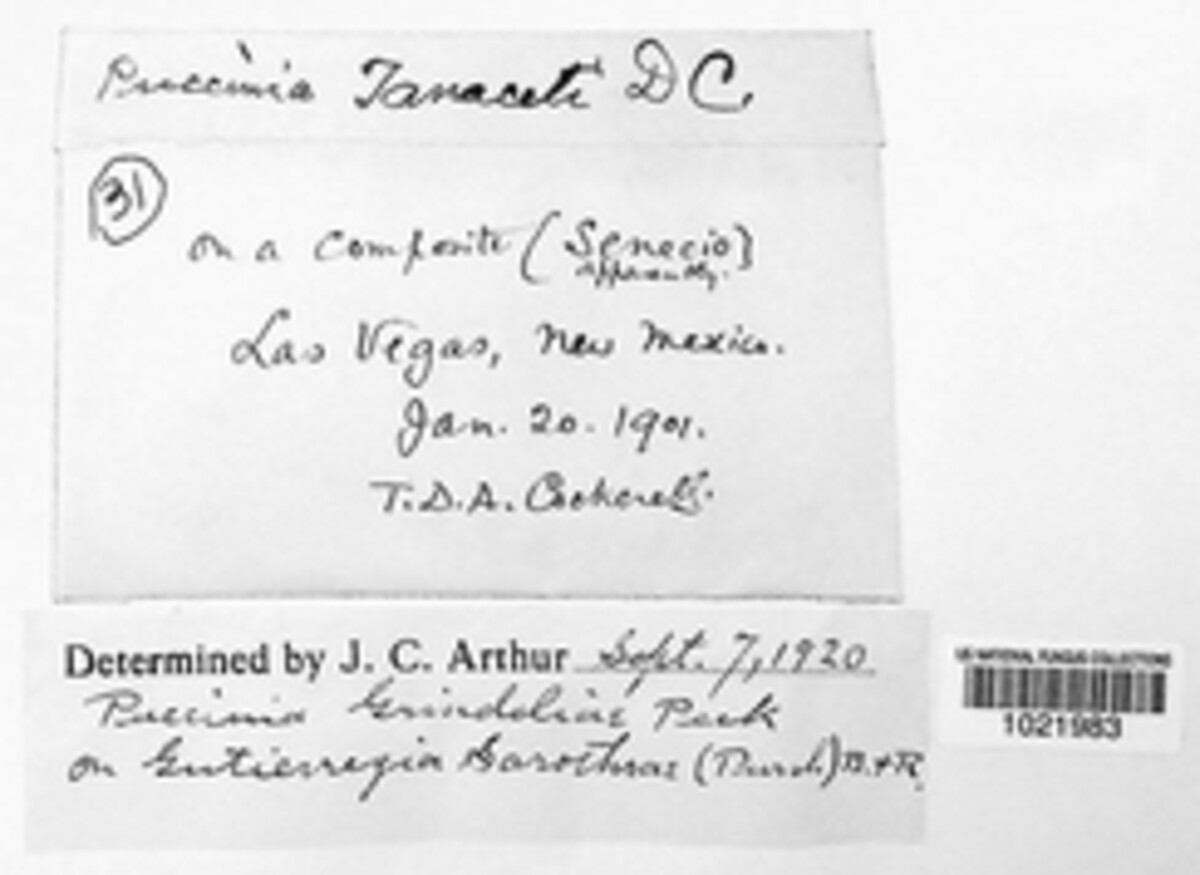 Puccinia Tanaceti DC.
31
on a composite (Senecio)
apparently.
Las Vegas, New Mexico.
Jan. 20. 1901.
T.D.A. Cockerell.
Determined by J. C. Arthur Sept. 7, 1920
Puccinia Grindeliae Peck
on Gutierrezia Sarothrae (Pursh) B. + R.
US NATIONAL FUNGUS COLLECTIONS
1021983